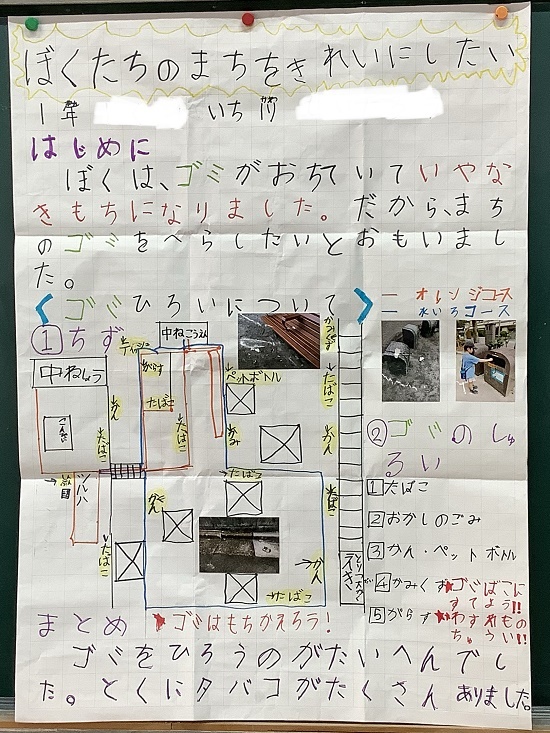 ぼくたちのまちをきれいにしたい
1年 いち
はじめに
ぼくは、ゴミがおちていていやな
きもちになりました。だから、まち
のゴミをへらしたいとおもいまし
た。
ゴミひろいについて
オレンジコース
れいろコース
①ちず
中ねこうえん
ティッシュ
がらす
かみくず
中ねしょう
ペットボトル
たばこ
たばこ
かん
たばこ
たばこ
かん
たばこ
かん
たばこ
たばこ
かん
→たばこ
ツルハ
②ゴミのしゅ
るい
1たばこ
2おかしのごみ
3かん・ペットボトル
4かみくず
5がらす
★ゴミばこに
すてよう!!
★わすれもの
ちゅうい!!
まとめ
★ゴミはもちかえろう!
ゴミをひろうのがたいへんでし
た。とくにタバコがたくさんありました。